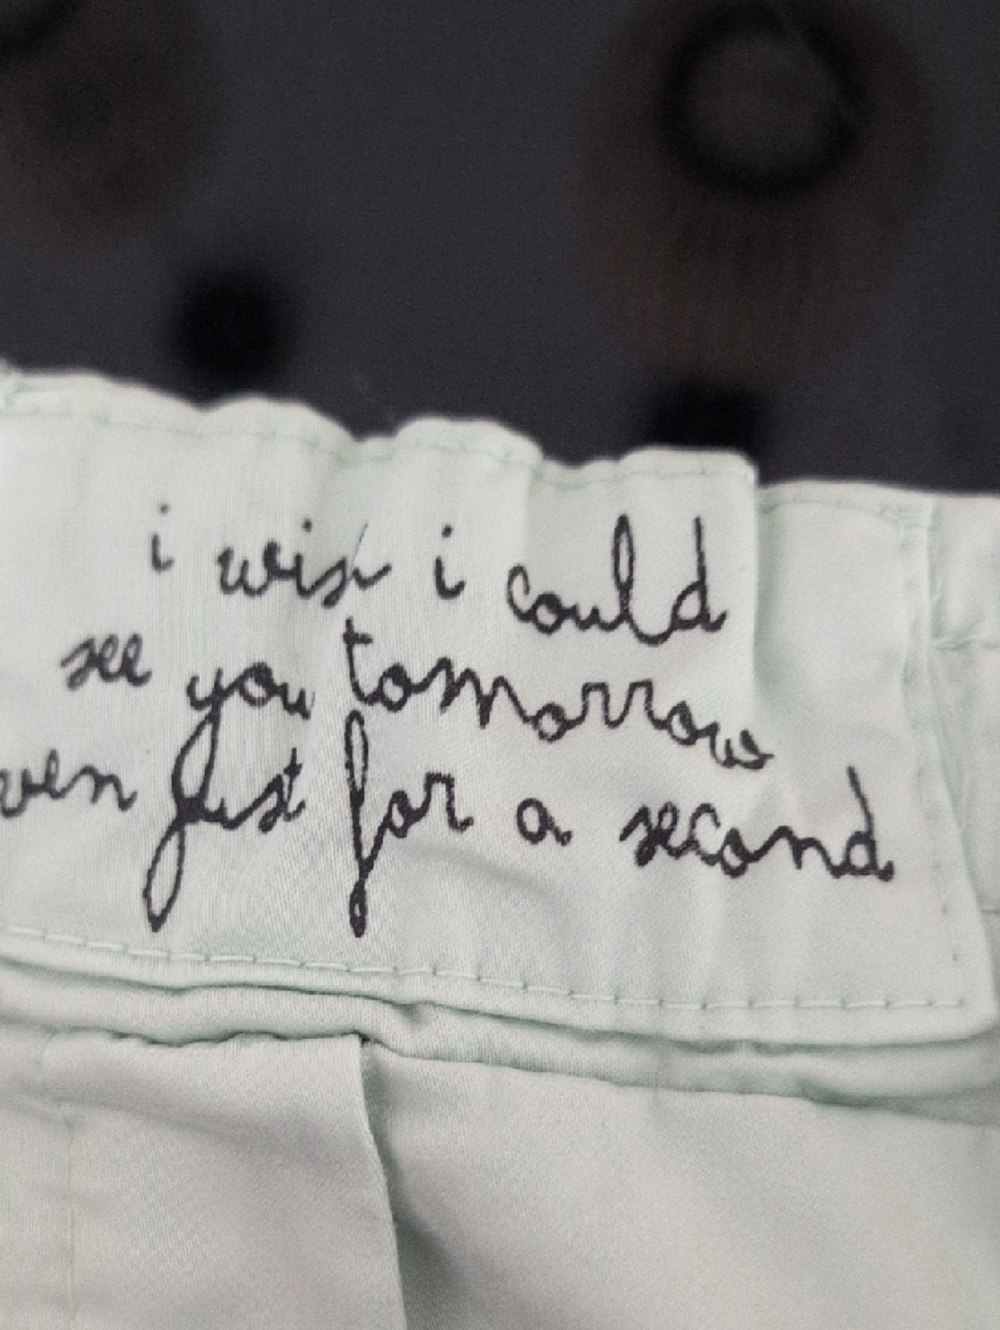 i wish i could
see you tomorrow
ven just for a second